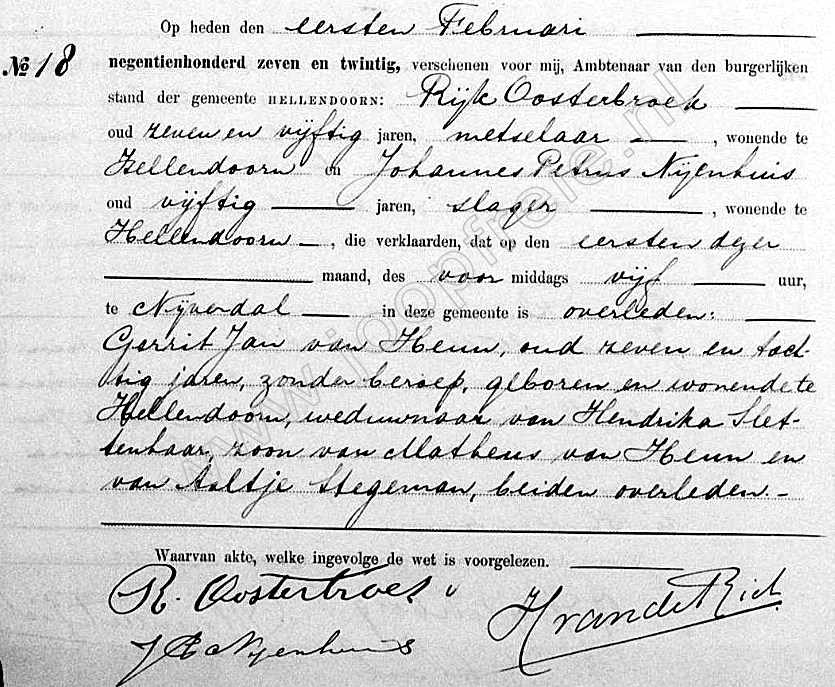 Op heden den eersten Februari
No 18 negentienhonderd zeven en twintig, verschenen voor mij, Ambtenaar van den burgerlijken
stand der gemeente HELLENDOORN: Rijk Oosterbroek
oud zeven en vijftig jaren, metselaar, wonende te
Hellendoorn en Johannes Petrus Nijenhuis
oud vijftig jaren, slager, wonende te
Hellendoorn, die verklaarden, dat op den eersten dezer
maand, des voor middags vijf uur,
te Nijverdal in deze gemeente is overleden:
Gerrit Jan van Heun, oud zeven en tach-
tig jaren, zonder beroep, geboren en wonende te
Hellendoorn, weduwnaar van Hendrika Slet-
tenhaar, zoon van Matheus van Heun en
van Aaltje Stegeman, beiden overleden.-
Waarvan akte, welke ingevolge de wet is voorgelezen.
R. Oosterbroek
Nijenhuis
www.joopfreie.nl